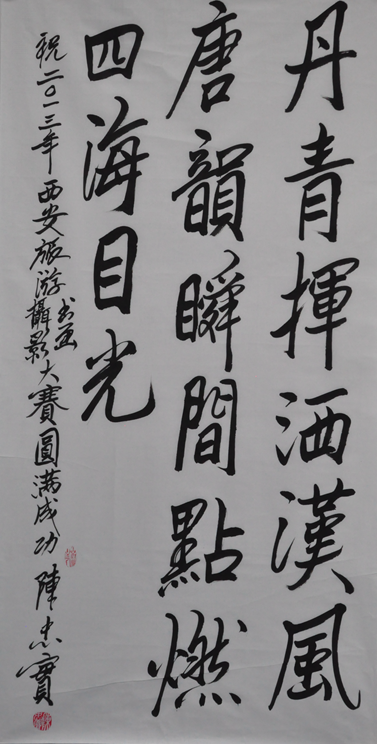 丹青揮洒漢風
唐韻瞬間點燃
四海目光
祝二〇一三年西安旅游書画攝影大賽圓满成功 陳忠實